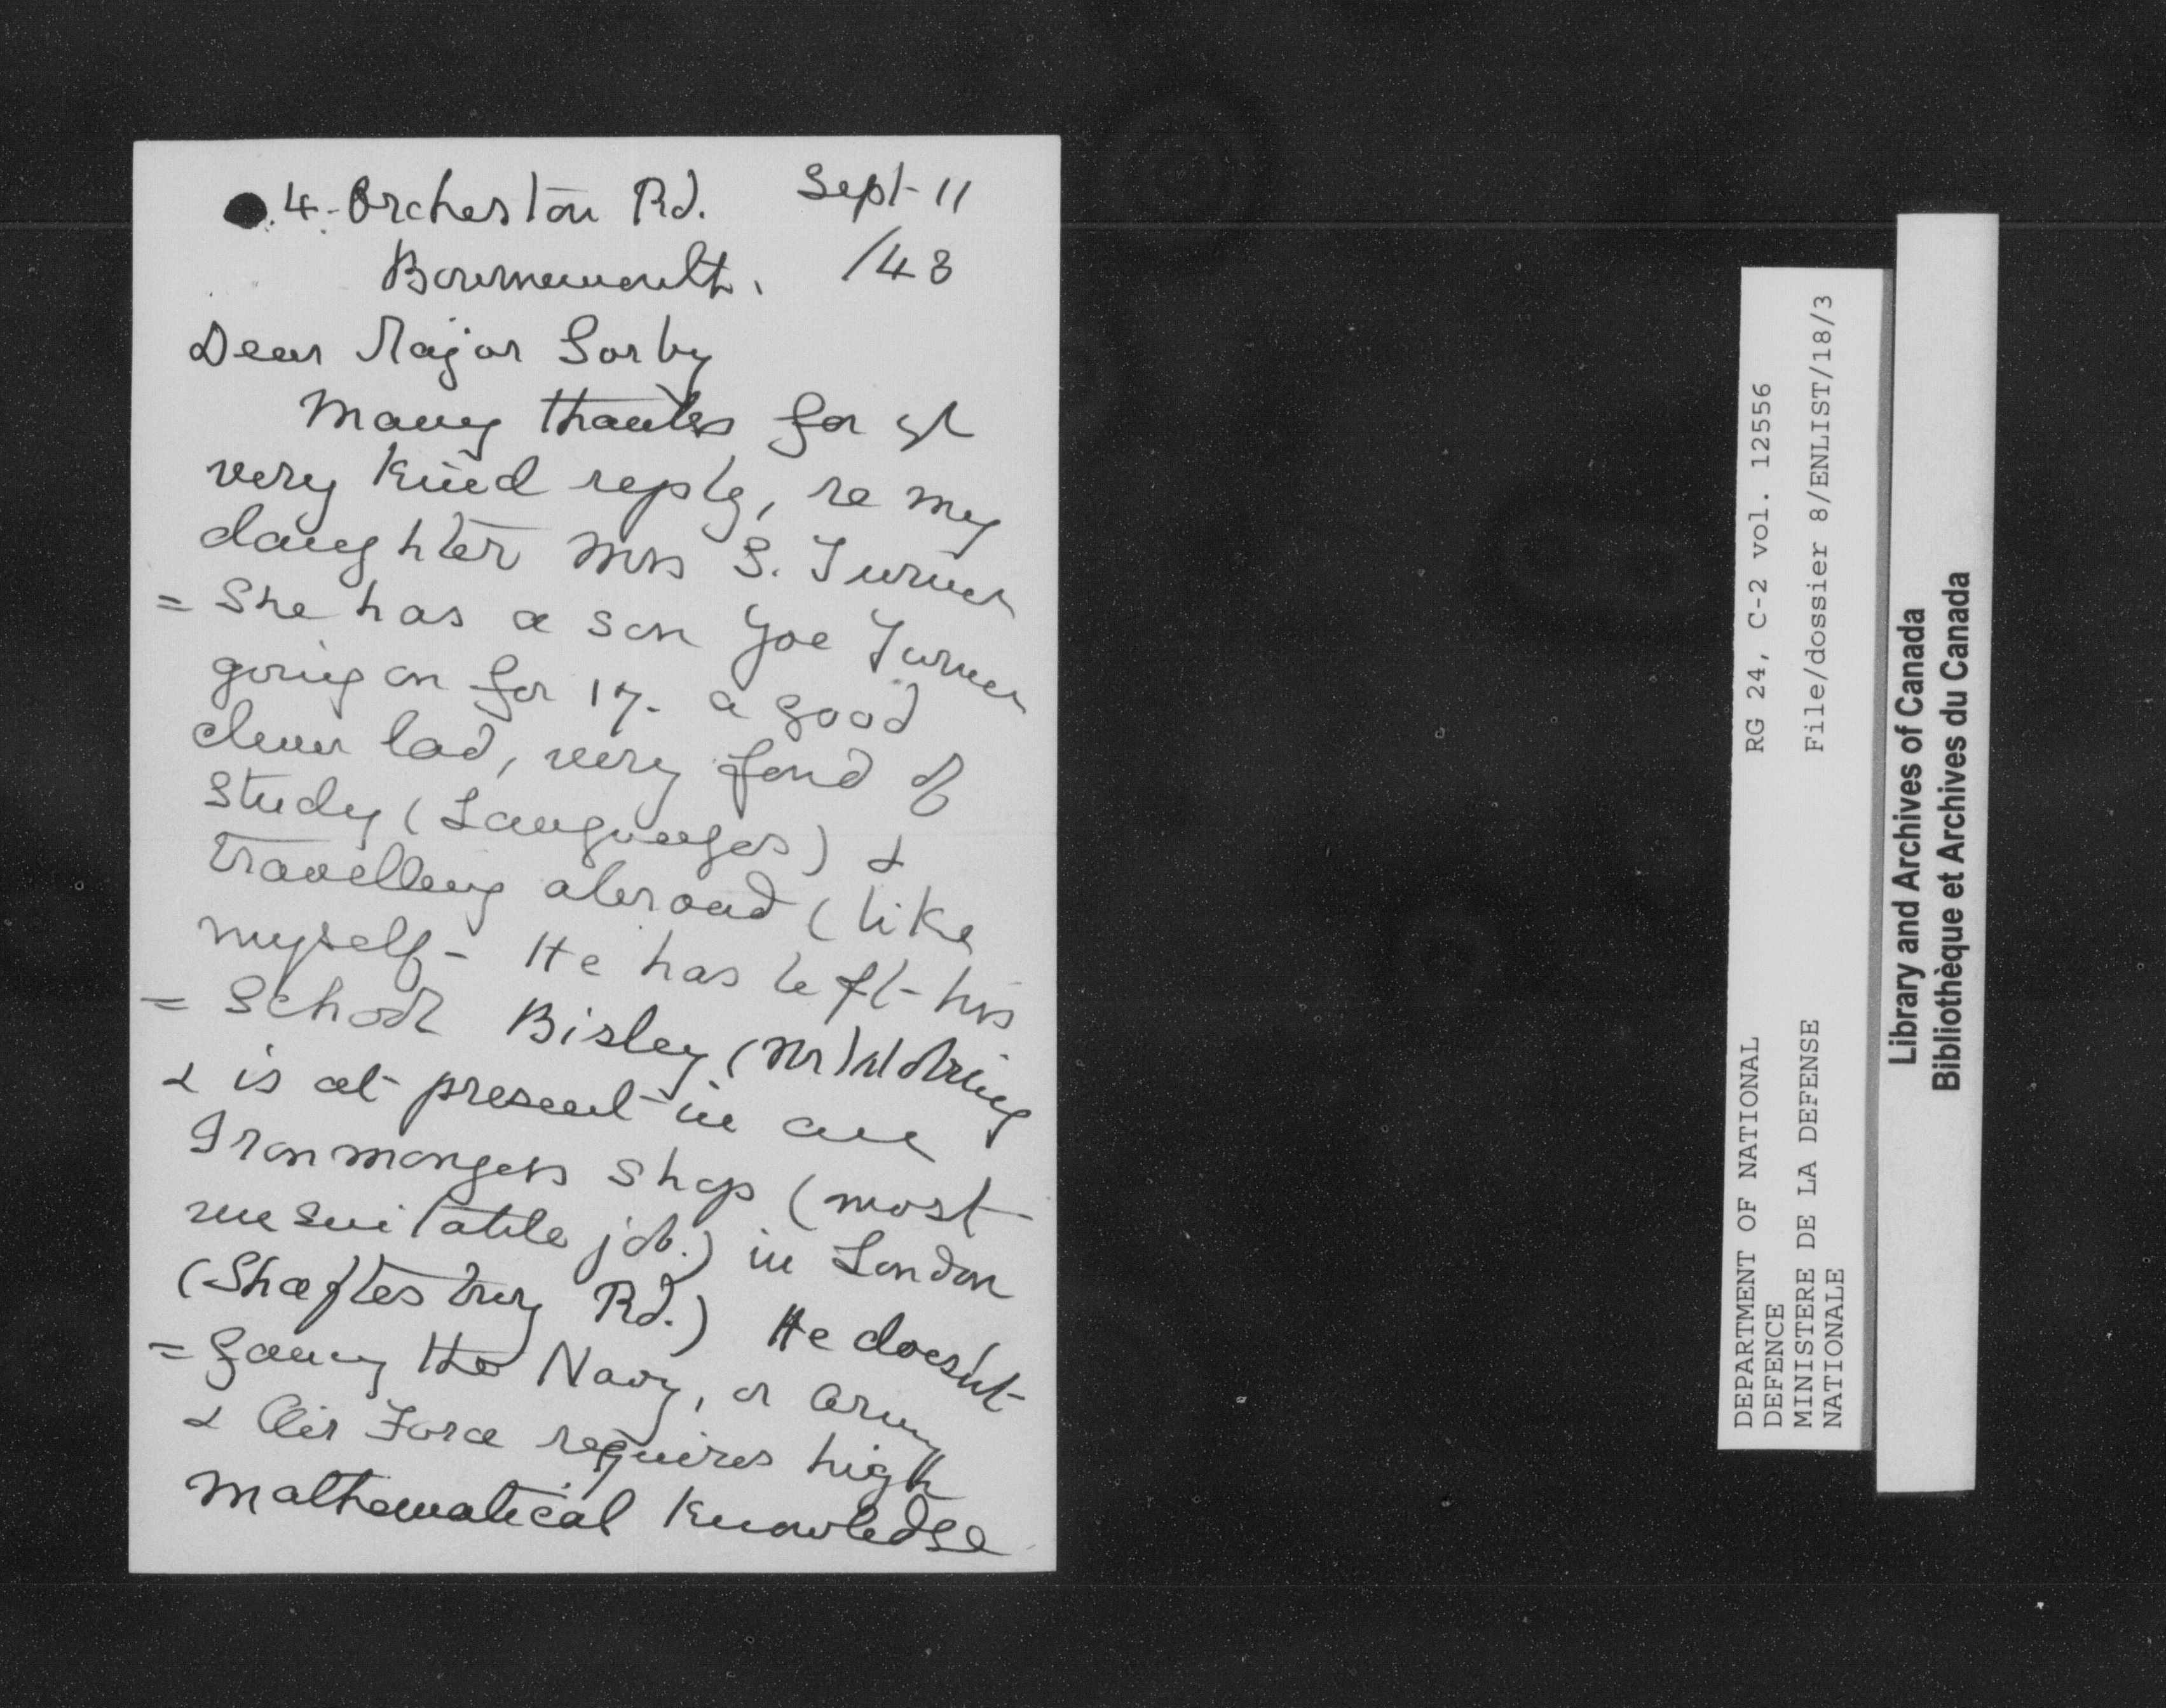 4. Orcheston Rd. Sept-11
Bournemouth. /48
Dear Major Sorby
Many thanks for yr
very kind reply, re my
daughter Mrs S. Turner
= She has a son Joe Turner
going on for 17. a good
clever lad, very fond of
Study (Languages) &
travelling abroad (like
myself - He has left his
= School Bisley (Nr) Woking
& is at present in an
Ironmongers shop (most
unsuitable job.) in London
(Shaftesbury Rd.) He doesn't
= fancy the Navy, or Army
& Air Force requires high
Mathematical Knowledge
DEPARTMENT OF NATIONAL
DEFENCE
MINISTERE DE LA DEFENSE
NATIONALE
RG 24, C-2 vol. 12556
File/dossier 8/ENLIST/18/3
Library and Archives of Canada
Bibliothèque et Archives du Canada